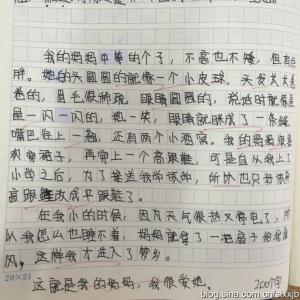 我的妈妈中等的个子，不高也不矮，但有点
胖。她的头圆圆的就像一个小皮球，头发大大卷
卷的，眉毛很稀疏，眼睛圆圆的，说话时就像星
星一闪一闪的，她一笑，眼睛就眯成了一条缝，
嘴巴往上一翘，还有两个小酒窝。我的妈妈很喜
欢穿裙子，再穿上一个高跟鞋，可是自从我上了
小学之后，为了接送我学
高跟鞋改成平跟鞋了。
在我小的时候，因为天气很热又停电了，所
以我怎么也睡不着，妈妈就拿了一把扇子给我扇
风，这样我才进入了梦乡。
这就是我的妈妈，我很爱她。
20×21
blog.sina.com.cn